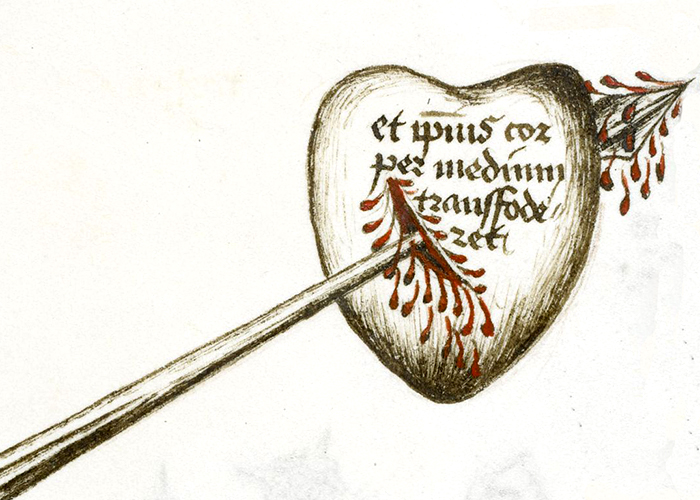 et ip̅ius cor
per medium
transfode
ret